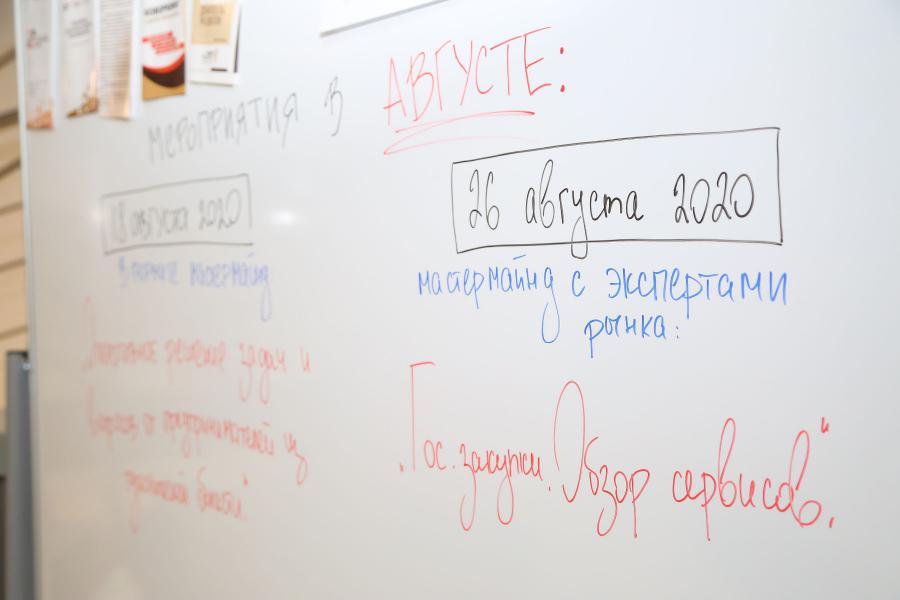 МЕРОПРИЯТИЯ В АВГУСТЕ:
18 августа 2020
В формате мастермайнд
решение задач и
предпринимателей из
26 августа 2020
мастермайнд с экспертами
рынка:
"Гос. закупки. Обзор сервисов".